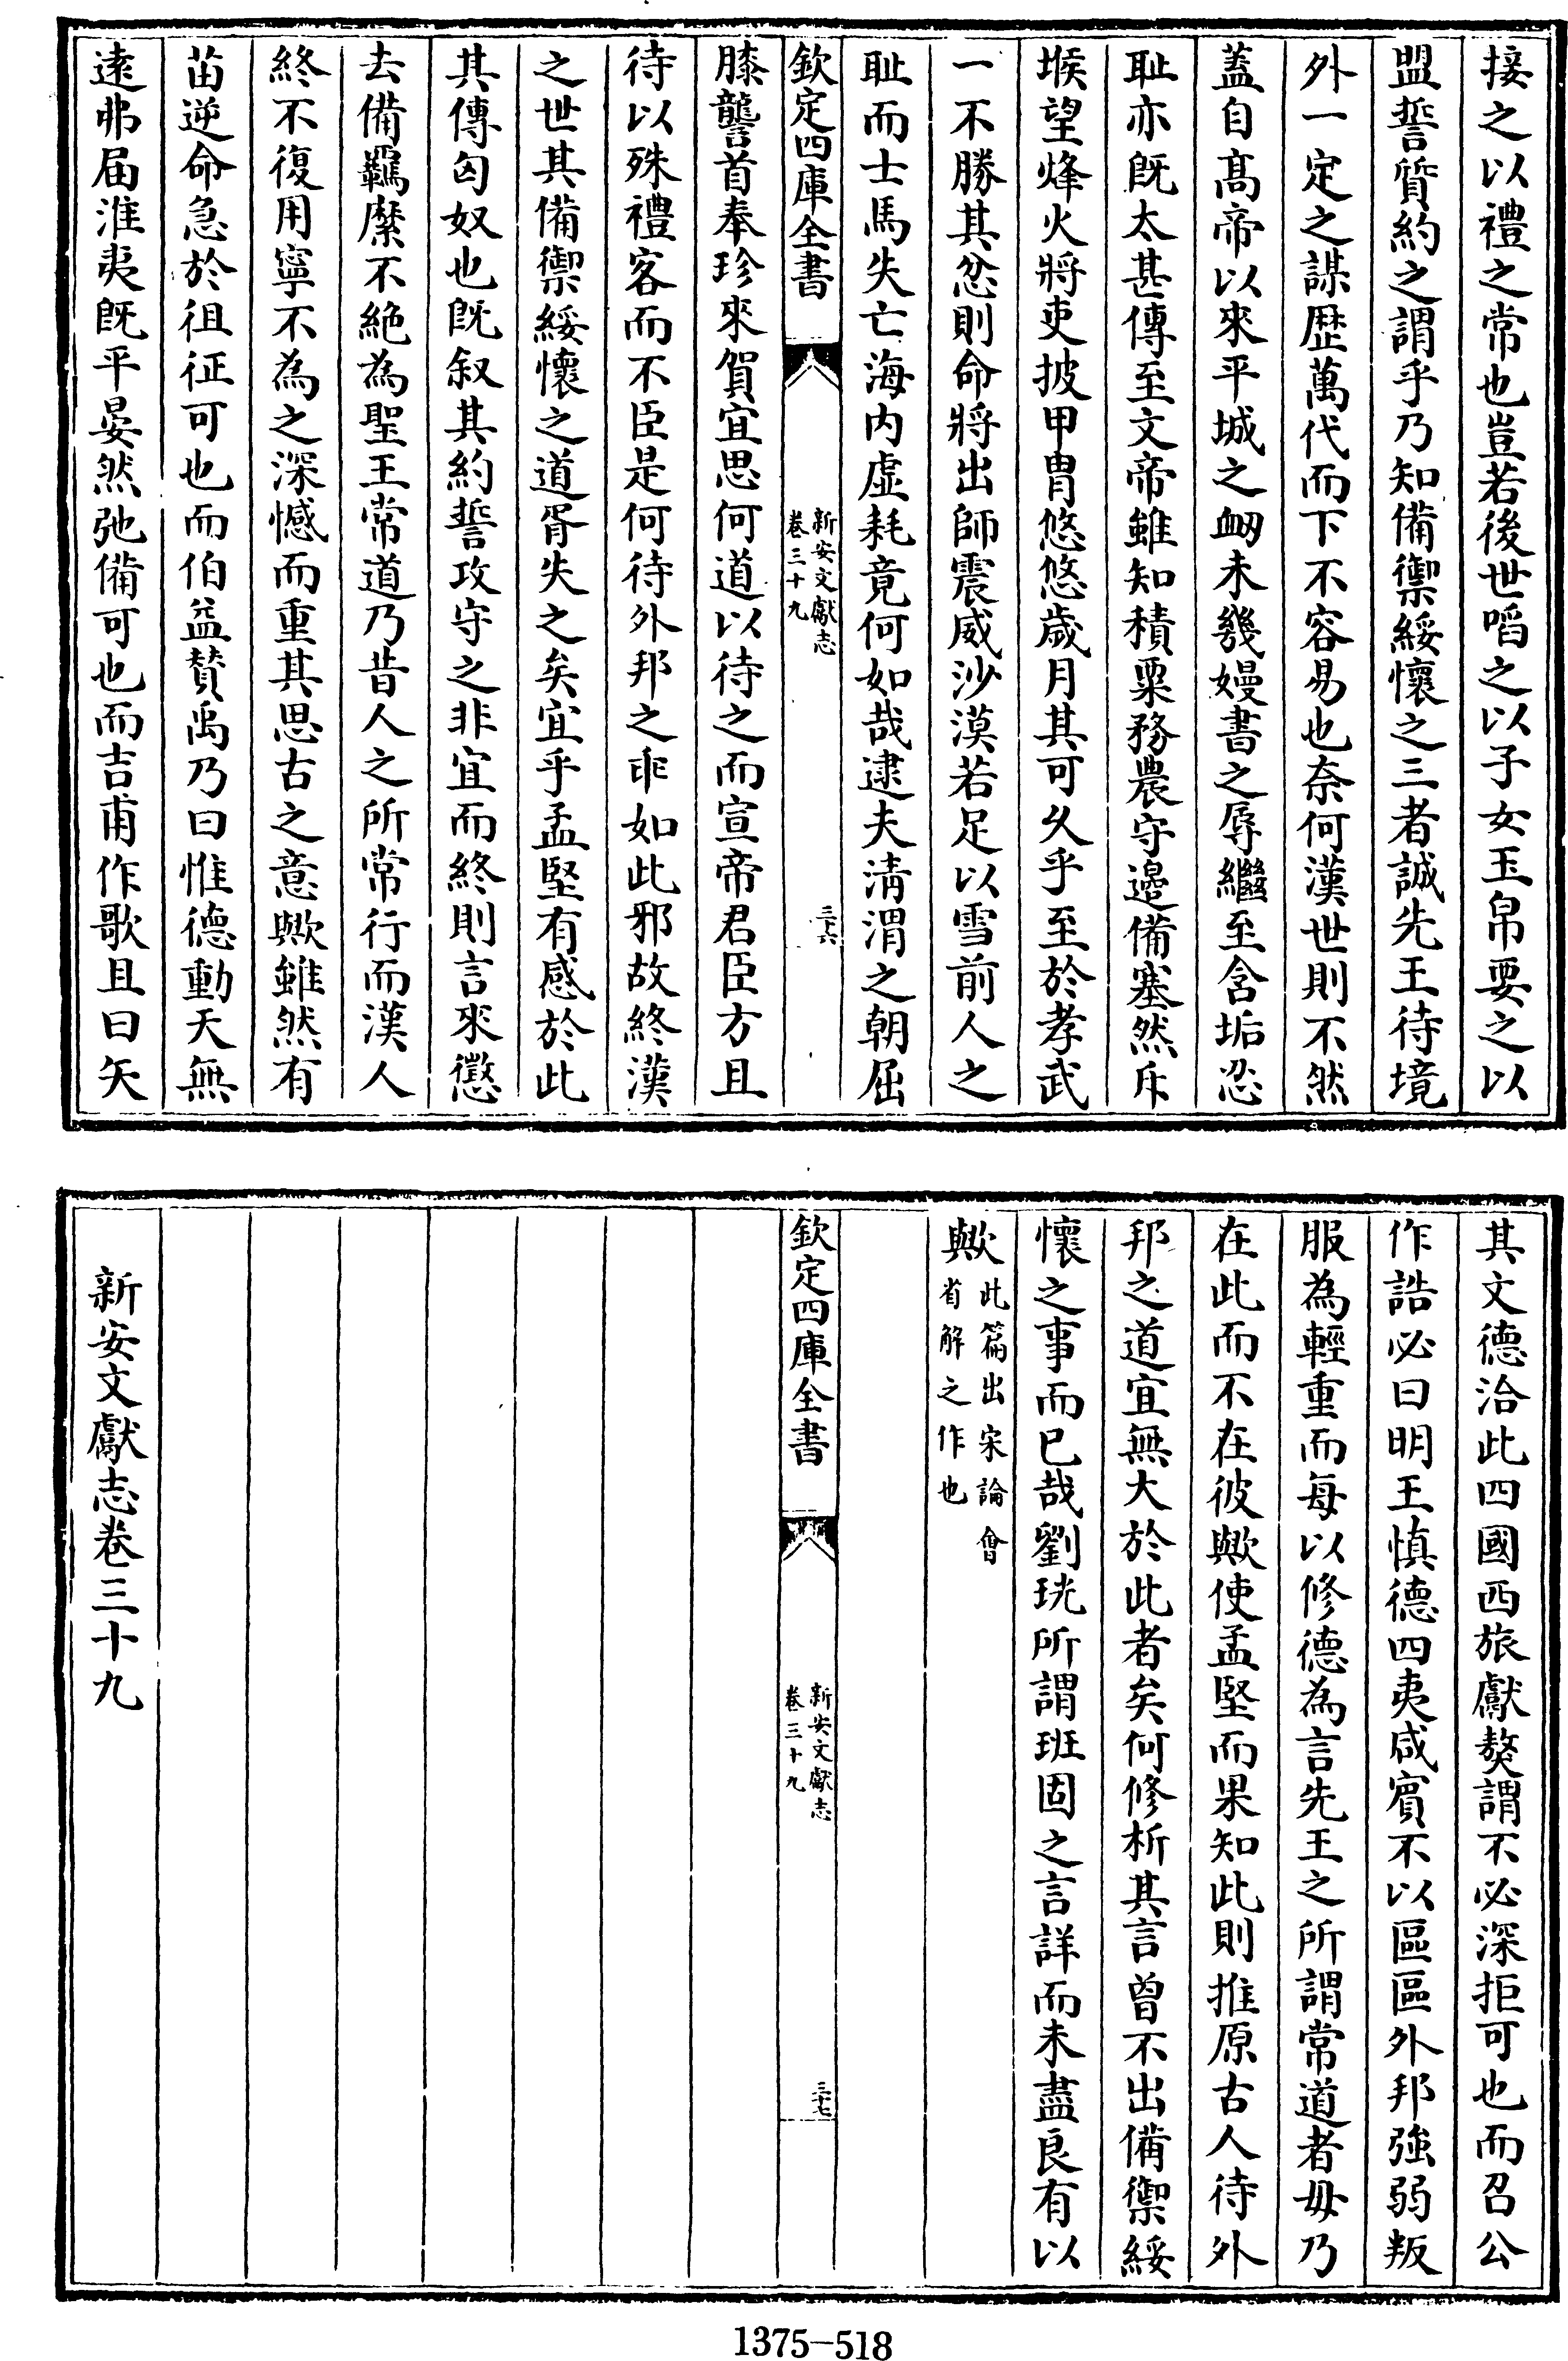 接之以禮之常也豈若後世啗之以子女玉帛要之以
盟誓質約之謂乎乃知備禦綏懷之三者誠先王待境
外一定之謀歴萬代而下不容易也奈何漢世則不然
蓋自髙帝以來平城之衂未幾嫚書之辱繼至含垢忍
恥亦既太甚傳至文帝雖知積粟務農守邉備塞然斥
堠望烽火將吏披甲胄悠悠歲月其可久乎至於孝武
一不勝其忿則命將出師震威沙漠若足以雪前人之
恥而士馬失亡海内虚耗竟何如哉逮夫清渭之朝屈
欽定四庫全書
新安文獻志
卷三十九
三十六
膝讋首奉珍來賀宜思何道以待之而宣帝君臣方且
待以殊禮客而不臣是何待外邦之乖如此邪故終漢
之世其備禦綏懷之道胥失之矣宜乎孟堅有感於此
其傳匈奴也既叙其約誓攻守之非宜而終則言來懲
去備羈縻不絶為聖王常道乃昔人之所常行而漢人
終不復用寧不為之深憾而重其思古之意歟雖然有
苗逆命急於徂征可也而伯益賛禹乃曰惟德動天無
逺弗届淮夷既平晏然弛備可也而吉甫作歌且曰矢
其文德洽此四國西旅獻獒謂不必深拒可也而召公
作誥必曰明王慎德四夷咸賓不以區區外邦強弱叛
服為輕重而每以修德為言先王之所謂常道者毋乃
在此而不在彼歟使孟堅而果知此則推原古人待外
邦之道宜無大於此者矣何修析其言曾不出備禦綏
懷之事而已哉劉珖所謂班固之言詳而未盡良有以
歟
此篇出宋論會
省解之作也
欽定四庫全書
新安文獻志
卷三十九
三十七
新安文獻志卷三十九
1375-518